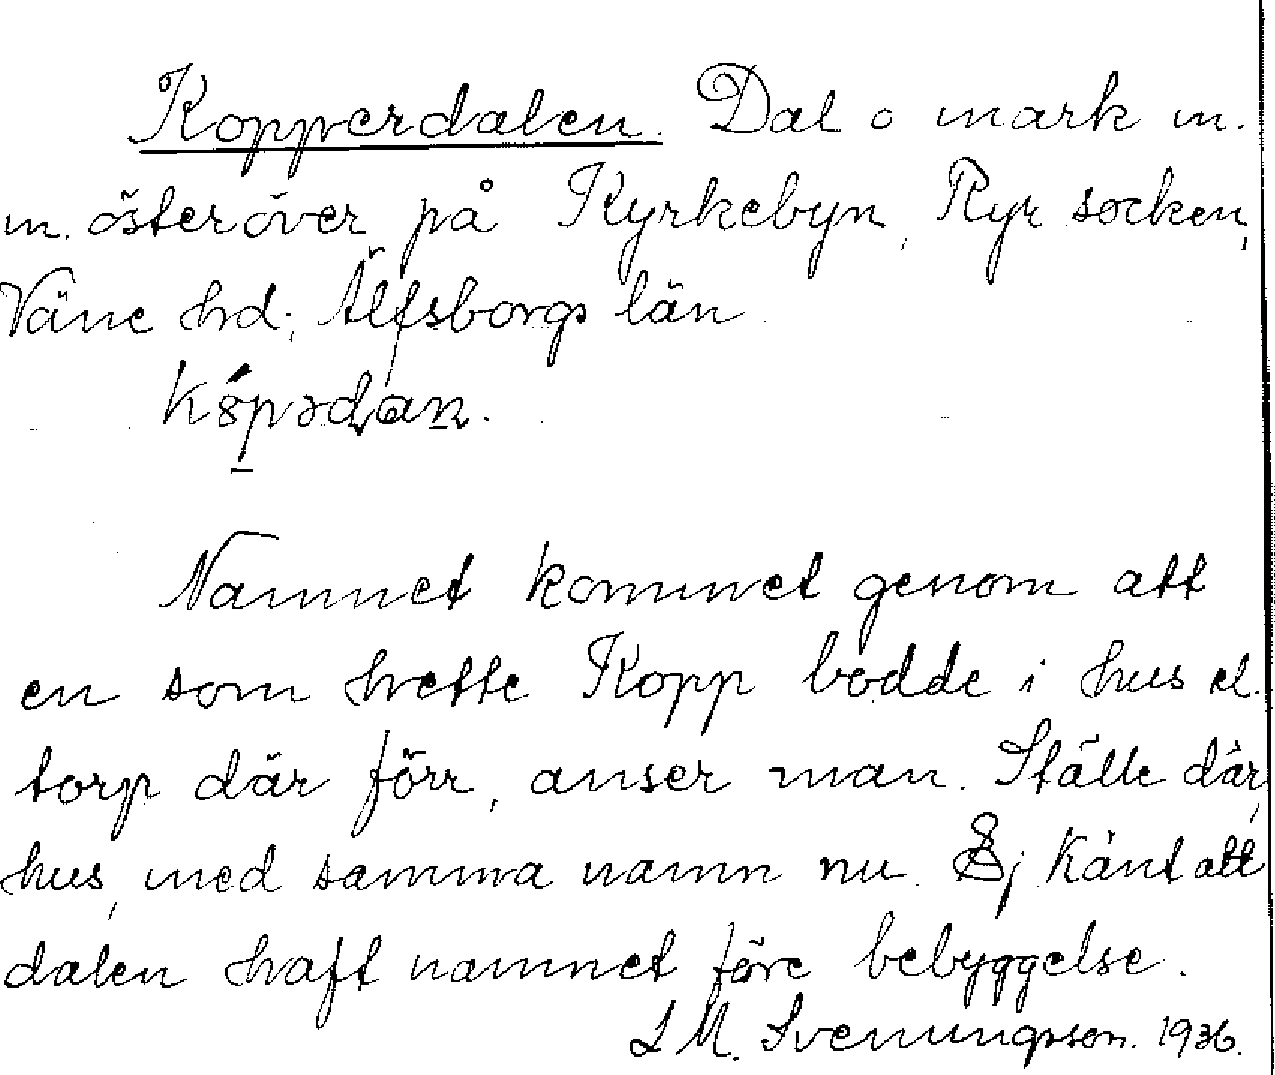 Kopperdalen. Dal o mark m.
m. österöver på Kyrkebyn, Ryr socken,
Väne hd; Älfsborgs län
Namnet kommet genom att
en som hette Kopp bodde i hus el.
torp där förr, anser man. Ställe där,
hus, med samma namn nu. Ej känt att
dalen haft namnet före bebyggelse.
L M. Svenungsson. 1936.